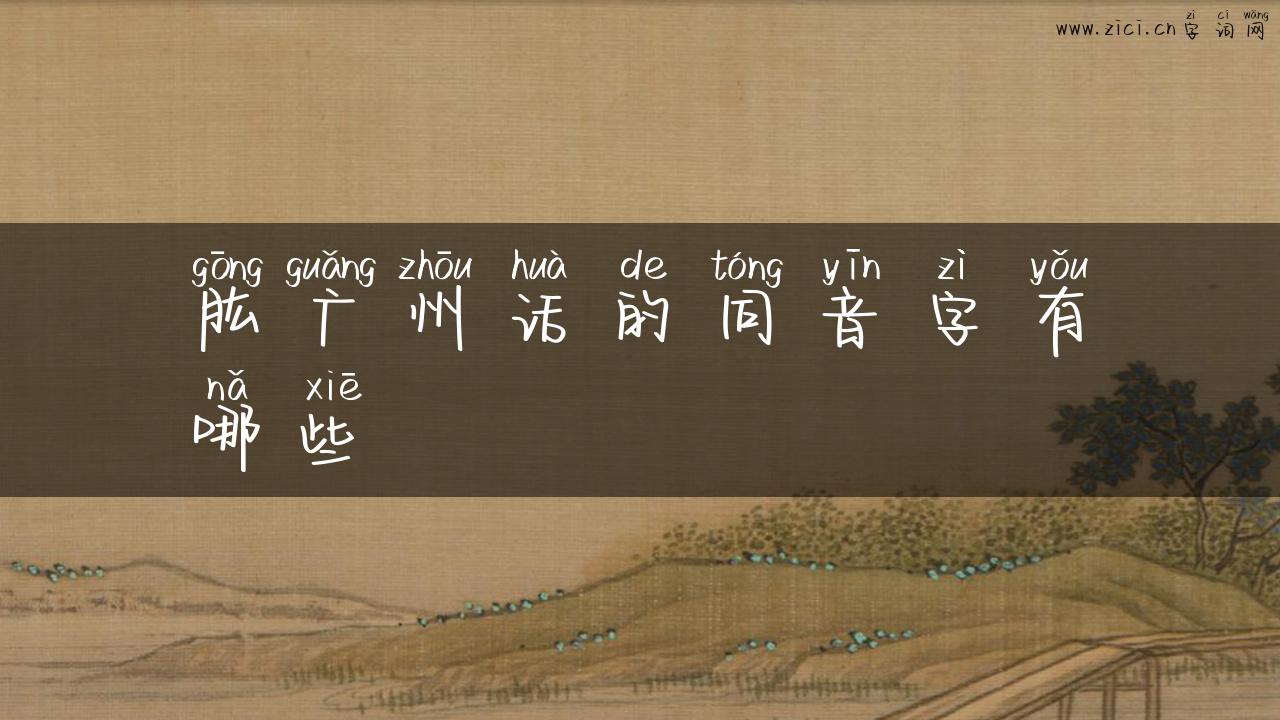 zì cí wǎng
www.zici.cn字词网
gōng guǎng zhōu huà de tóng yīn zì yǒu
肱广州话的同音字有
nǎ xiē
哪些